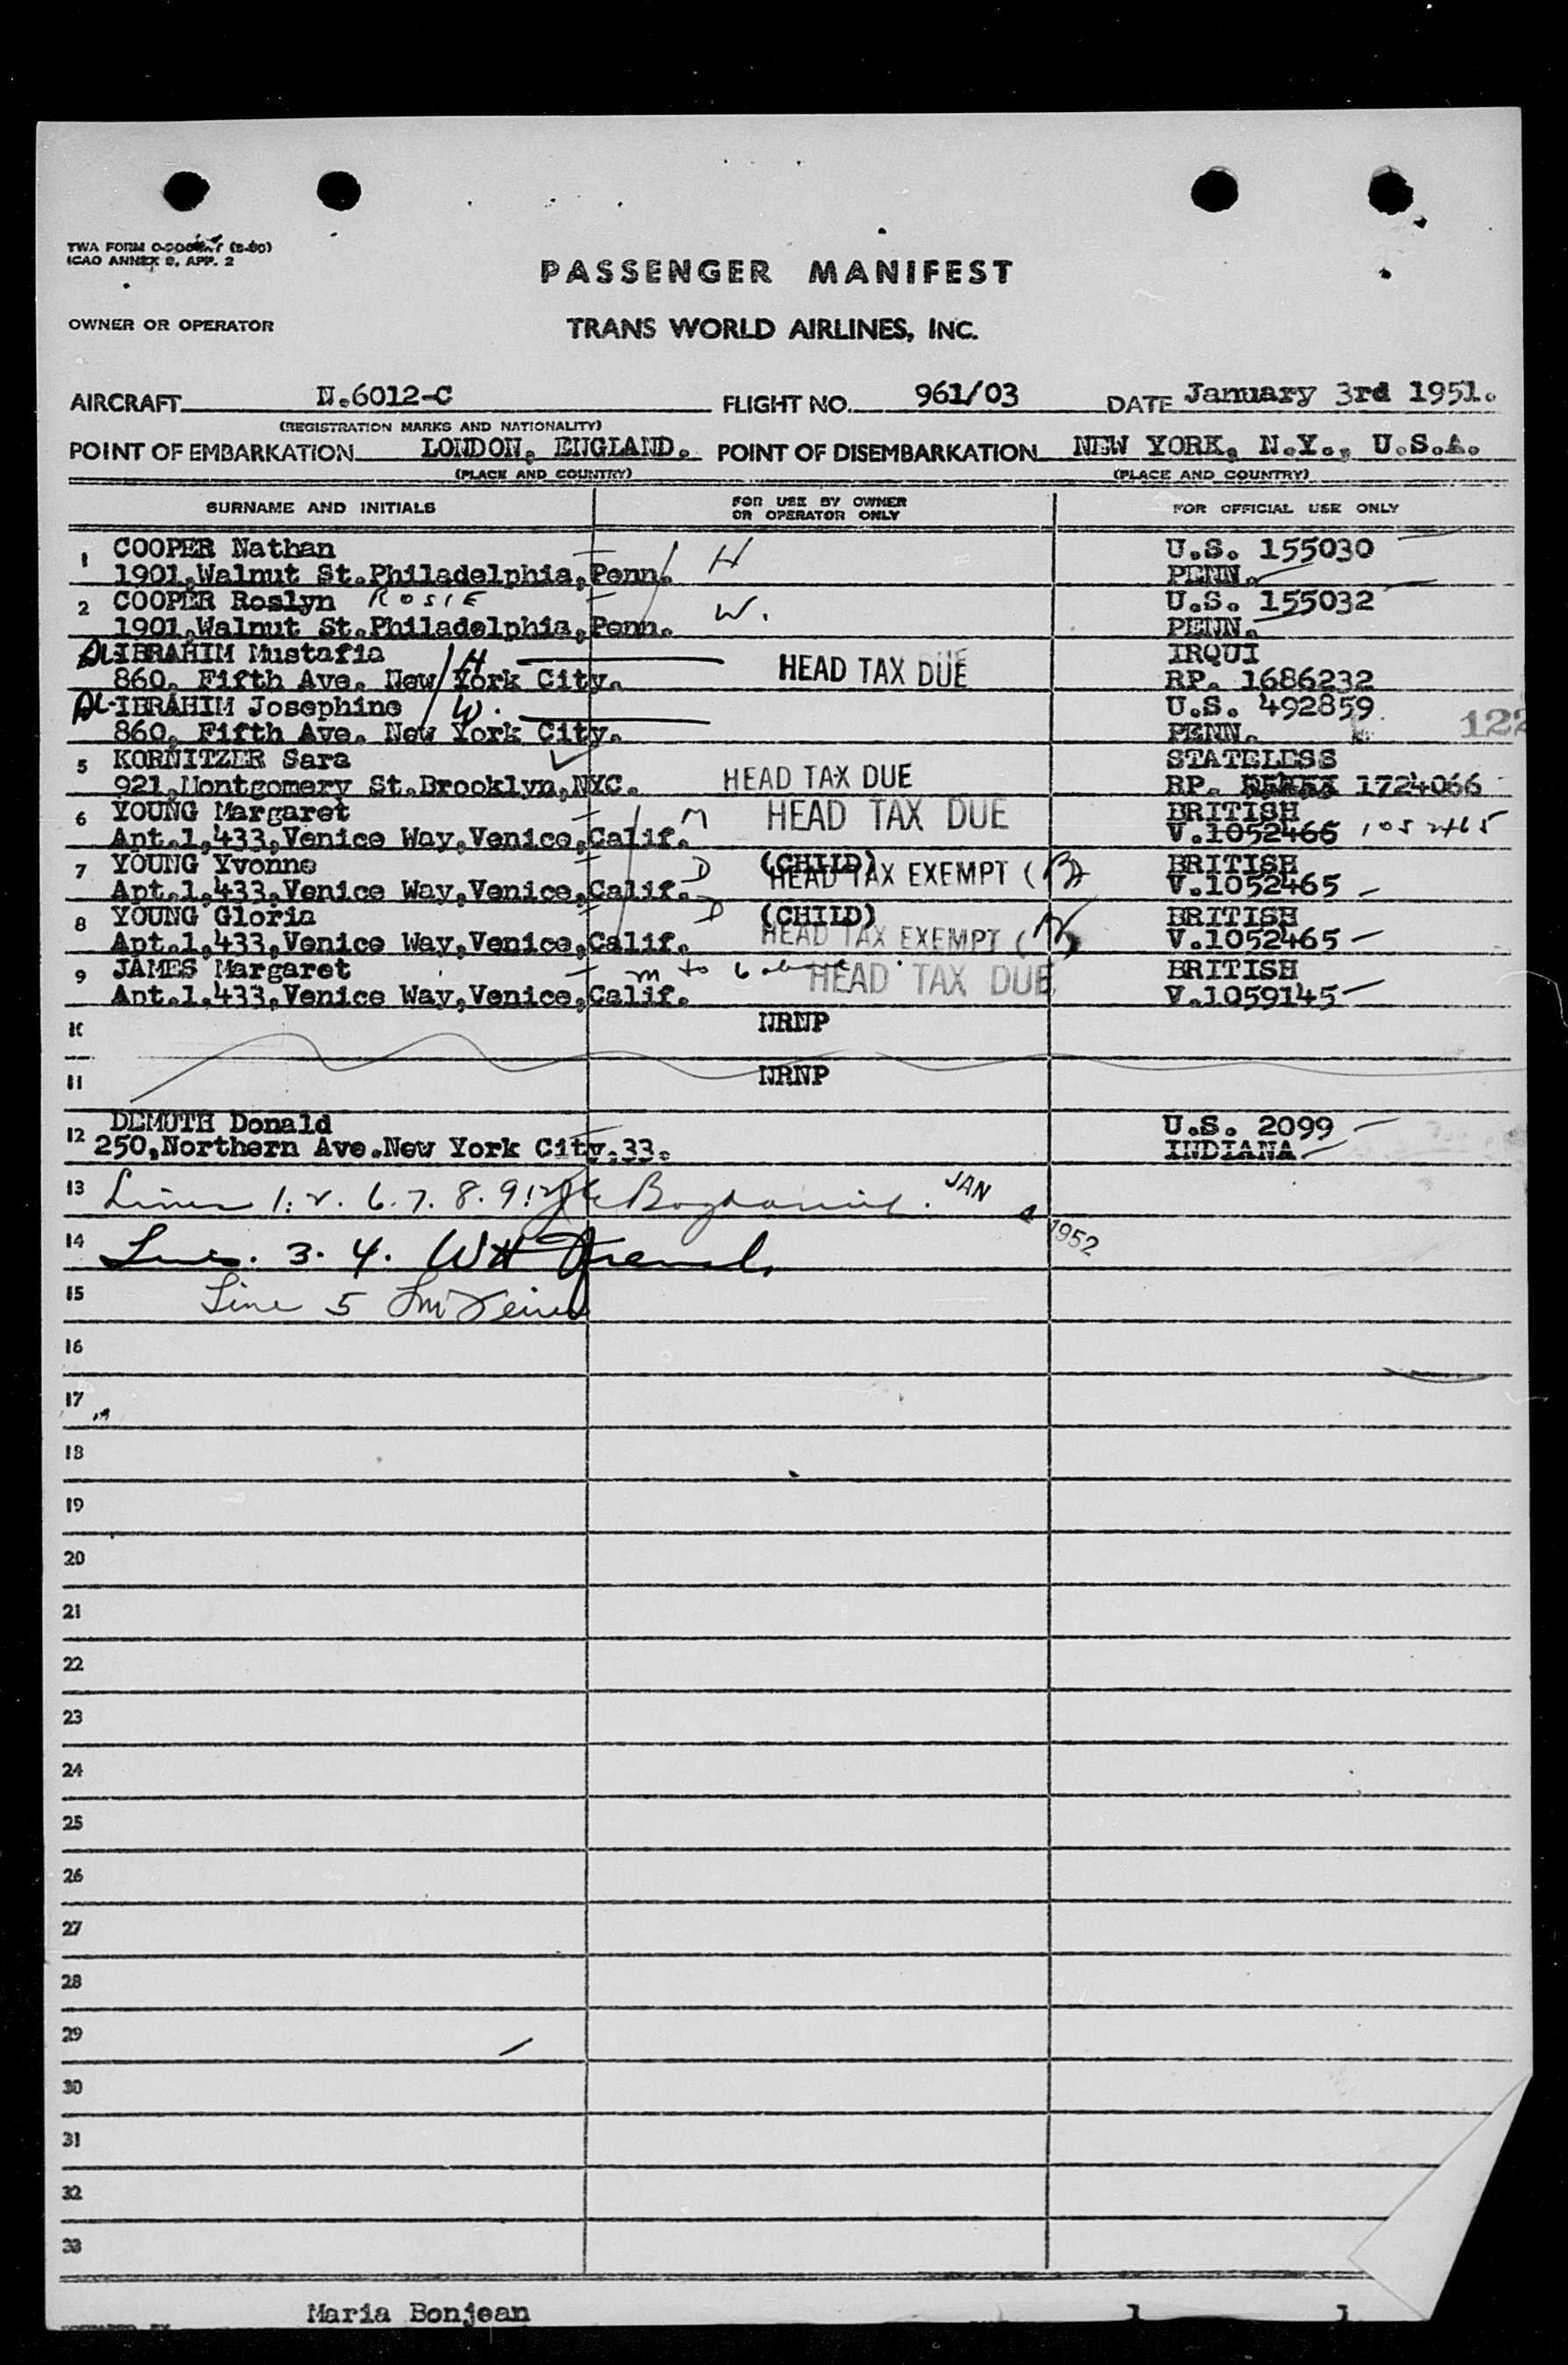 ICAO ANNEX 9, APP. 2
PASSENGER MANIFEST
OWNER OR OPERATOR
TRANS WORLD AIRLINES, INC.
AIRCRAFT N.6012-C FLIGHT NO. 961/03 DATE January 3rd 1951.
(REGISTRATION MARKS AND NATIONALITY)
POINT OF EMBARKATION LONDON, ENGLAND. POINT OF DISEMBARKATION NEW YORK, N.Y., U.S.A.
(PLACE AND COUNTRY) (PLACE AND COUNTRY)
SURNAME AND INITIALS FOR USE BY OWNER OR OPERATOR ONLY FOR OFFICIAL USE ONLY
1 COOPER Nathan H U.S. 155030
1901,Walnut St.Philadelphia,Penn. PENN.
2 COOPER Roslyn ROSIE W. U.S. 155032
1901,Walnut St.Philadelphia,Penn. PENN.
AL IBRAHIM Mustafia H HEAD TAX DUE IRQUI
860, Fifth Ave. New York City. RP. 1686232
AL-IBRAHIM Josephine W. U.S. 492859
860, Fifth Ave. New York City. PENN. 122
5 KORNITZER Sara STATELESS
921,Montgomery St.Brooklyn,NYC. HEAD TAX DUE RP. 1724066
6 YOUNG Margaret M HEAD TAX DUE BRITISH
Apt.1,433,Venice Way,Venice,Calif. V.1052466 1052465
7 YOUNG Yvonne D (CHILD) BRITISH
Apt.1,433,Venice Way,Venice,Calif. HEAD TAX EXEMPT ( V.1052465
8 YOUNG Gloria D (CHILD) BRITISH
Apt.1,433,Venice Way,Venice,Calif. HEAD TAX EXEMPT ( V.1052465
9 JAMES Margaret m to 6 above HEAD TAX DUE BRITISH
Apt.1,433,Venice Way,Venice,Calif. V.1059145
10 NRNP
11 NRNP
12 DEMUTH Donald U.S. 2099
250,Northern Ave.New York City.33. INDIANA
13 Lines 1. 2. 6. 7. 8. 9. 12 JAN 4 1952
14 Lines. 3. 4. WH
15 Line 5
16
17
18
19
20
21
22
23
24
25
26
27
28
29
30
31
32
33
Maria Bonjean 1 1